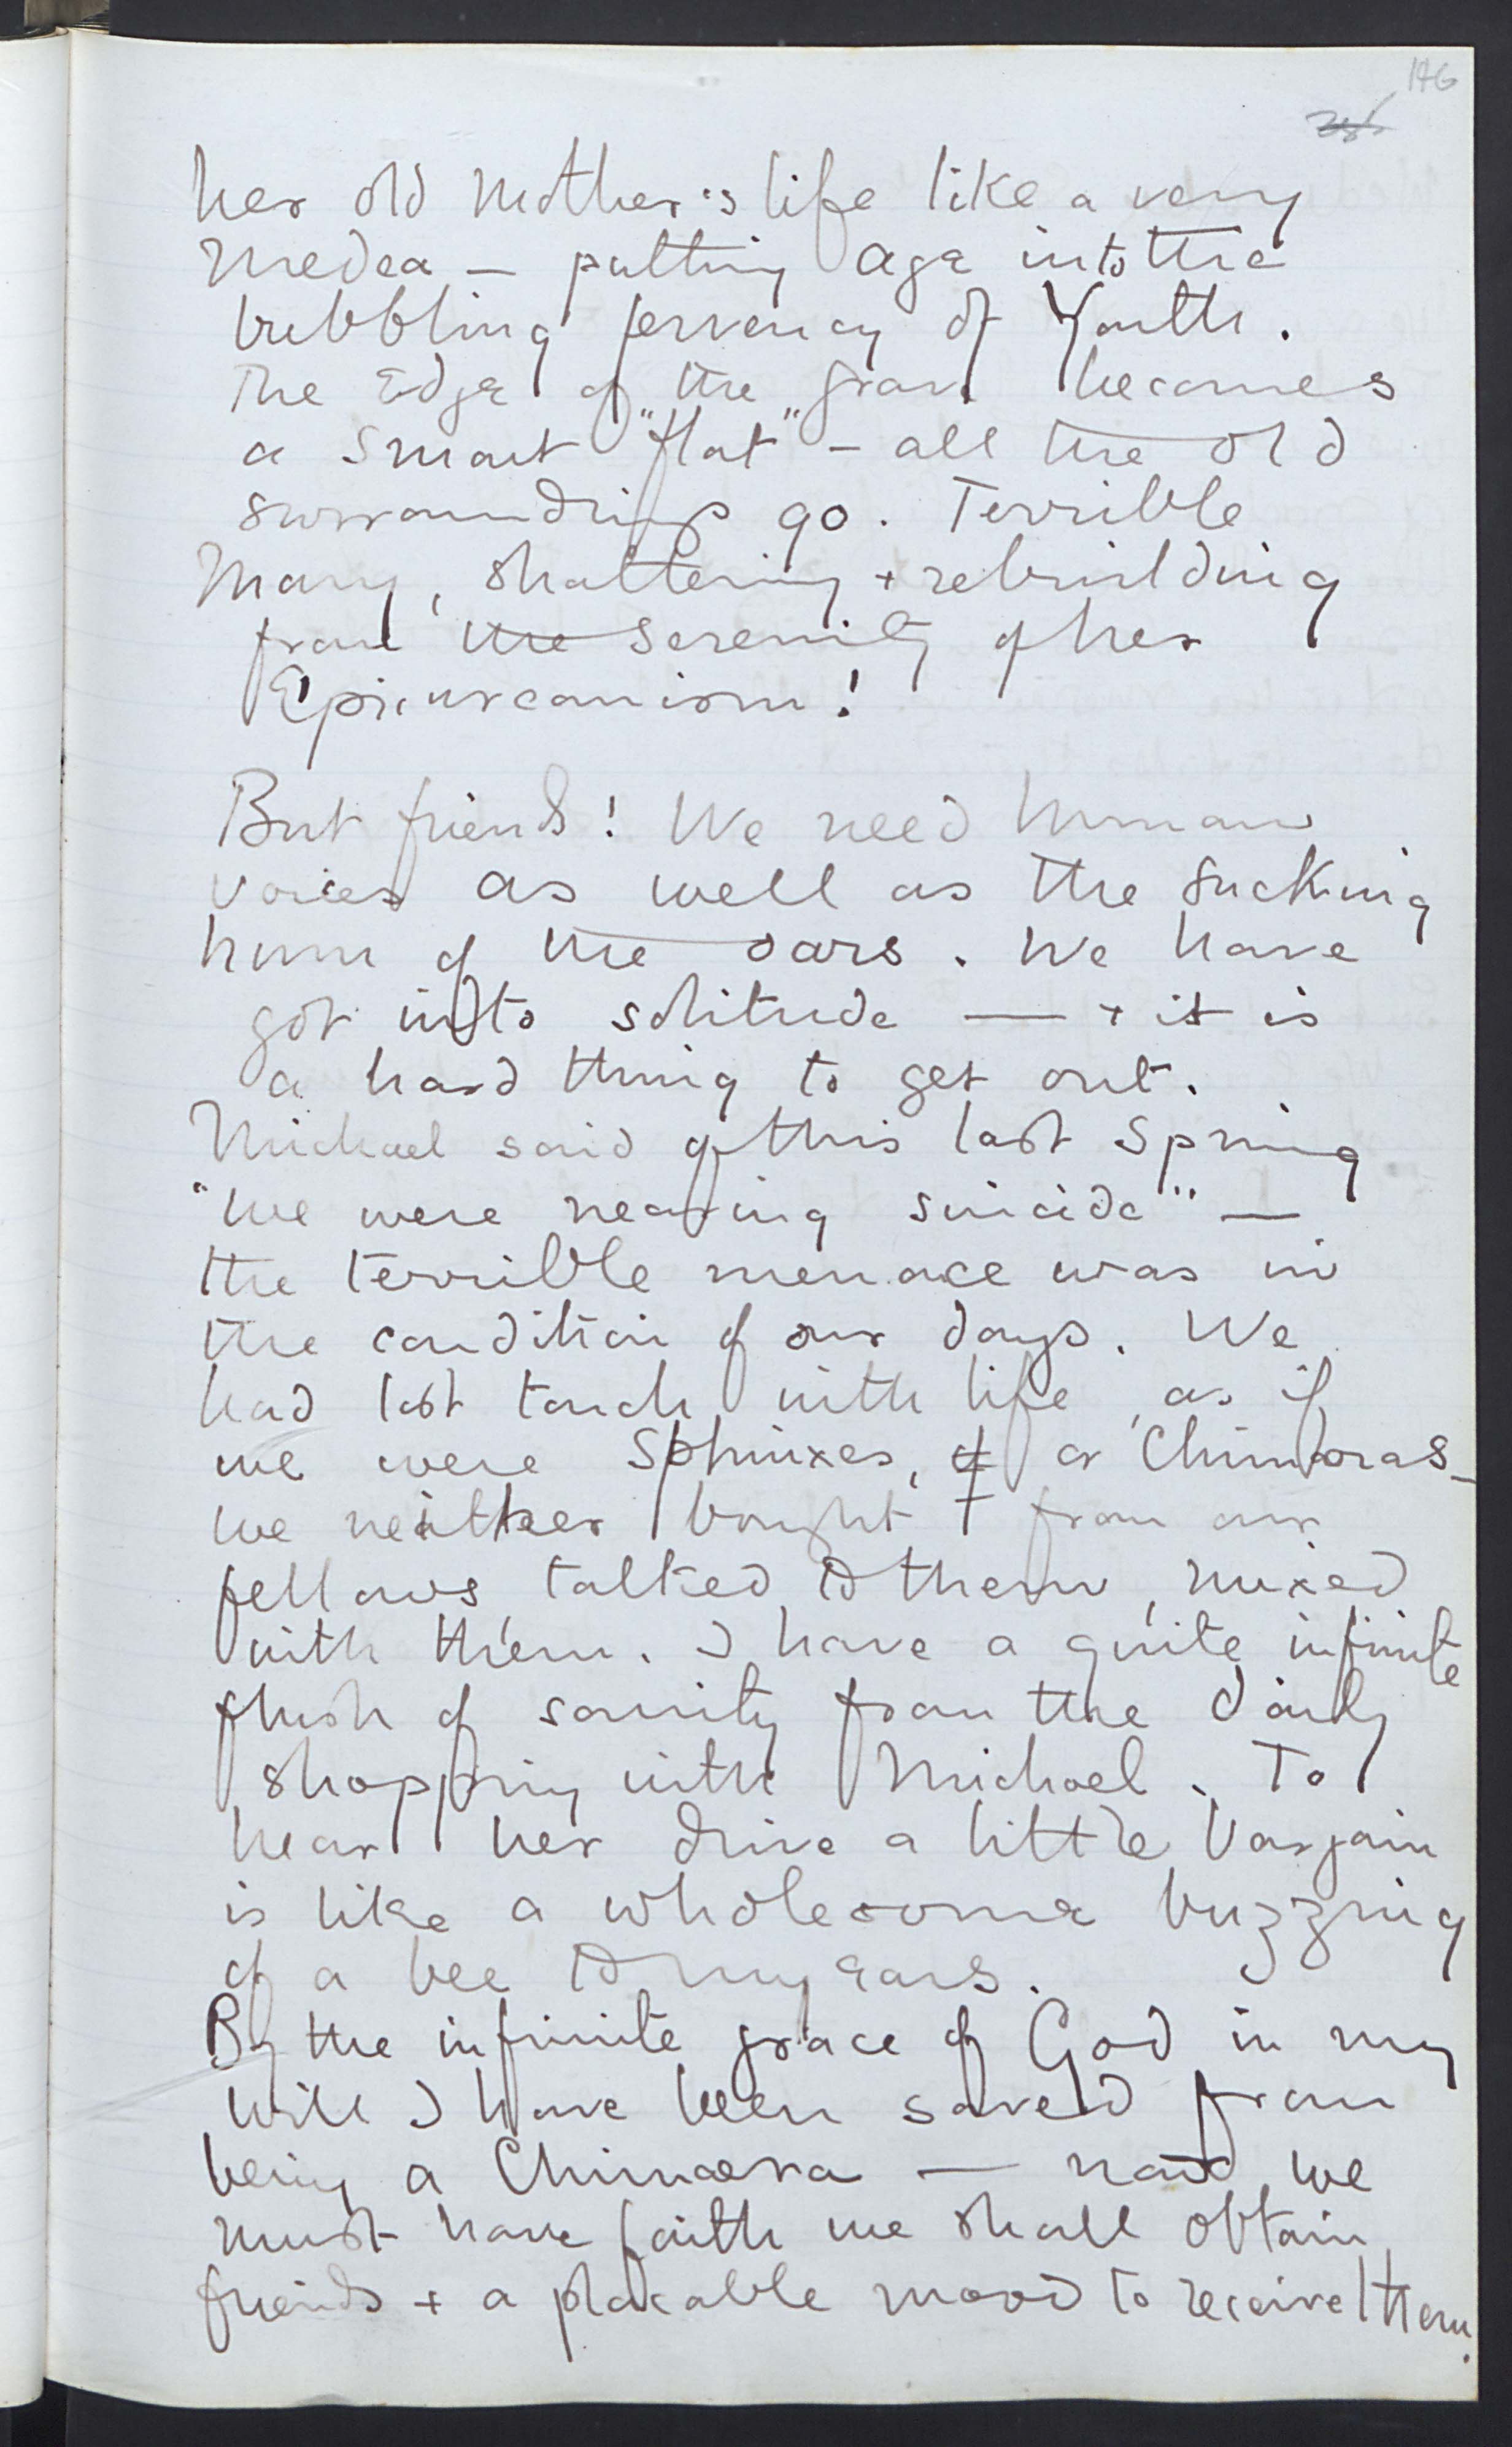 146
her old mother's life like a very
Medea — putting age into the
bubbling fervency of Youth.
The Edge of the grave becomes
a smart "flat" — all the old
surroundings go. Terrible
Mary, shattering + rebuilding
from the serenity of her
Epicureanism!
But friends! We need human
voices as well as the sucking
hum of the oars. We have
got into solitude — + it is
a hard thing to get out.
Michael said of this last Spring
"we were nearing suicide" —
the terrible menace was in
the condition of our days. We
had lost touch with life, as if
we were Sphinxes, or Chimæras —
we neither bought from our
fellows, talked to them, mixed
with them. I have a quite infinite
flush of sanity from the daily
shopping with Michael. To
hear her drive a little bargain
is like a wholesome buzzing
of a bee to my ears.
By the infinite grace of God in my
will I have been saved from
being a Chimaera — we
must have faith we shall obtain
friends + a placable mood to receive them.